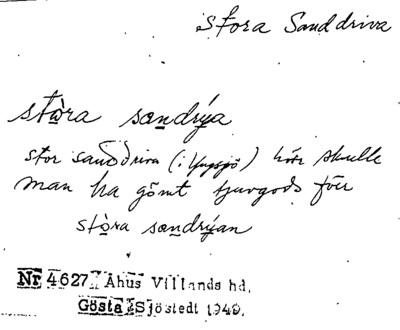 Stora Sanddriva
stὼra sandrýa
stor sanddriva (i Yngsjö) här skulle
man ha gömt tjuvgods förr
stὼra sandrýan
Nr 4627. Åhus Villands hd.
Gösta Sjöstedt 1949.